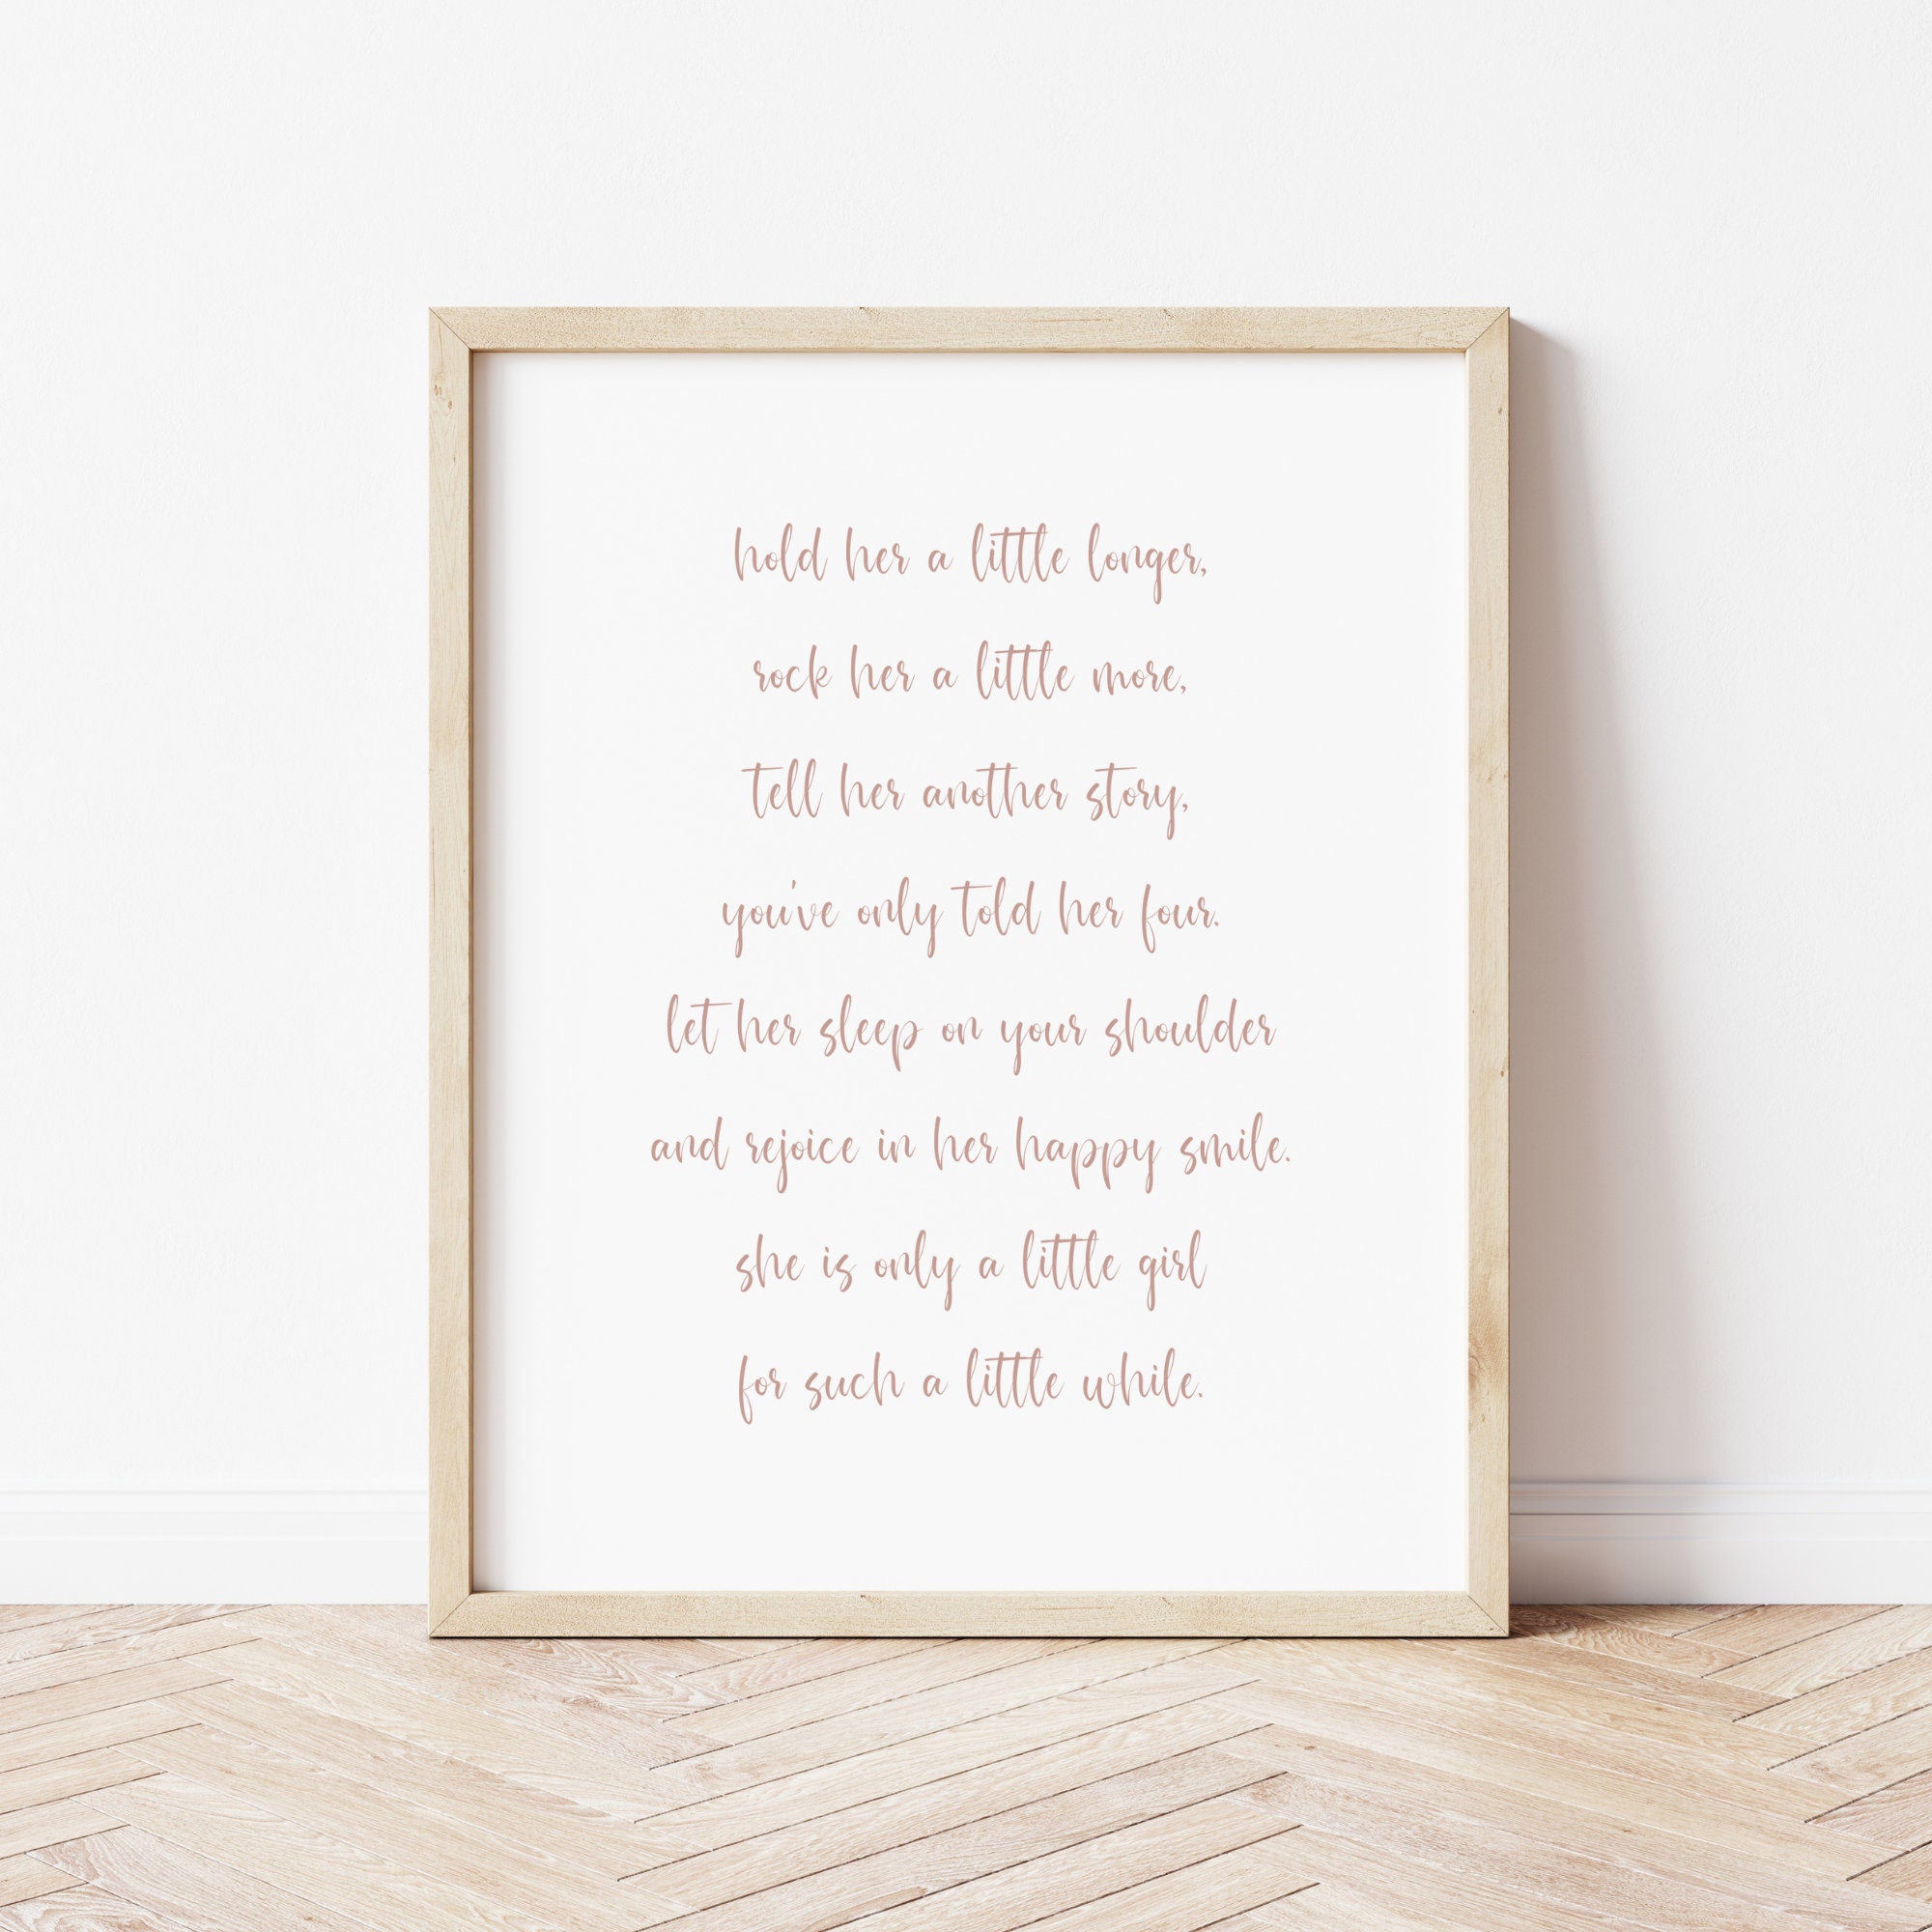 hold her a little longer,
rock her a little more,
tell her another story,
you've only told her four.
let her sleep on your shoulder
and rejoice in her happy smile.
she is only a little girl
for such a little while.